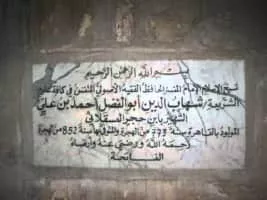 بسم الله الرحمن الرحيم
شيخ الإسلام الإمام الحافظ الفقيه الأصولي المتقن في كافة علوم
الشريعة / شهاب الدين أبو الفضل أحمد بن علي
الشهير بابن حجر العسقلاني
المولود بالقاهرة سنة 773 من الهجرة والمتوفى بها سنة 852 من الهجرة
رحمة الله ورضي عنه وأرضاه
الفاتحة